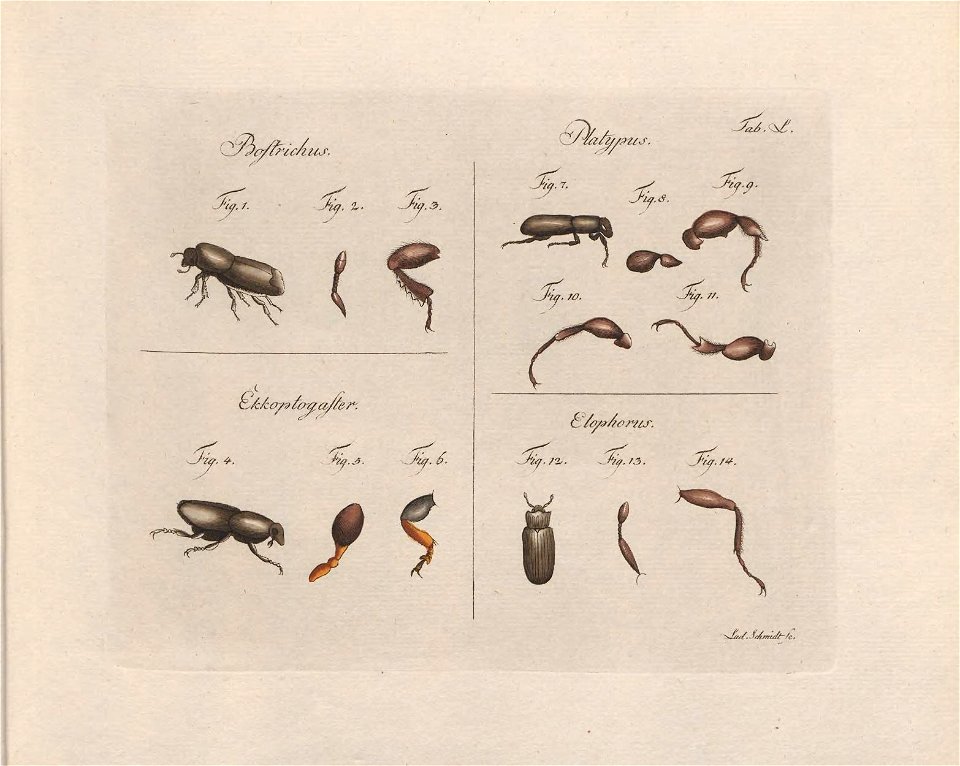 Tab. L.
Boſtrichus.
Fig. 1. Fig. 2. Fig. 3.
Ekkoptogaſter.
Fig. 4. Fig. 5. Fig. 6.
Platypus.
Fig. 7. Fig. 8. Fig. 9.
Fig. 10. Fig. 11.
Elophorus.
Fig. 12. Fig. 13. Fig. 14.
Lud. Schmidt ſc.